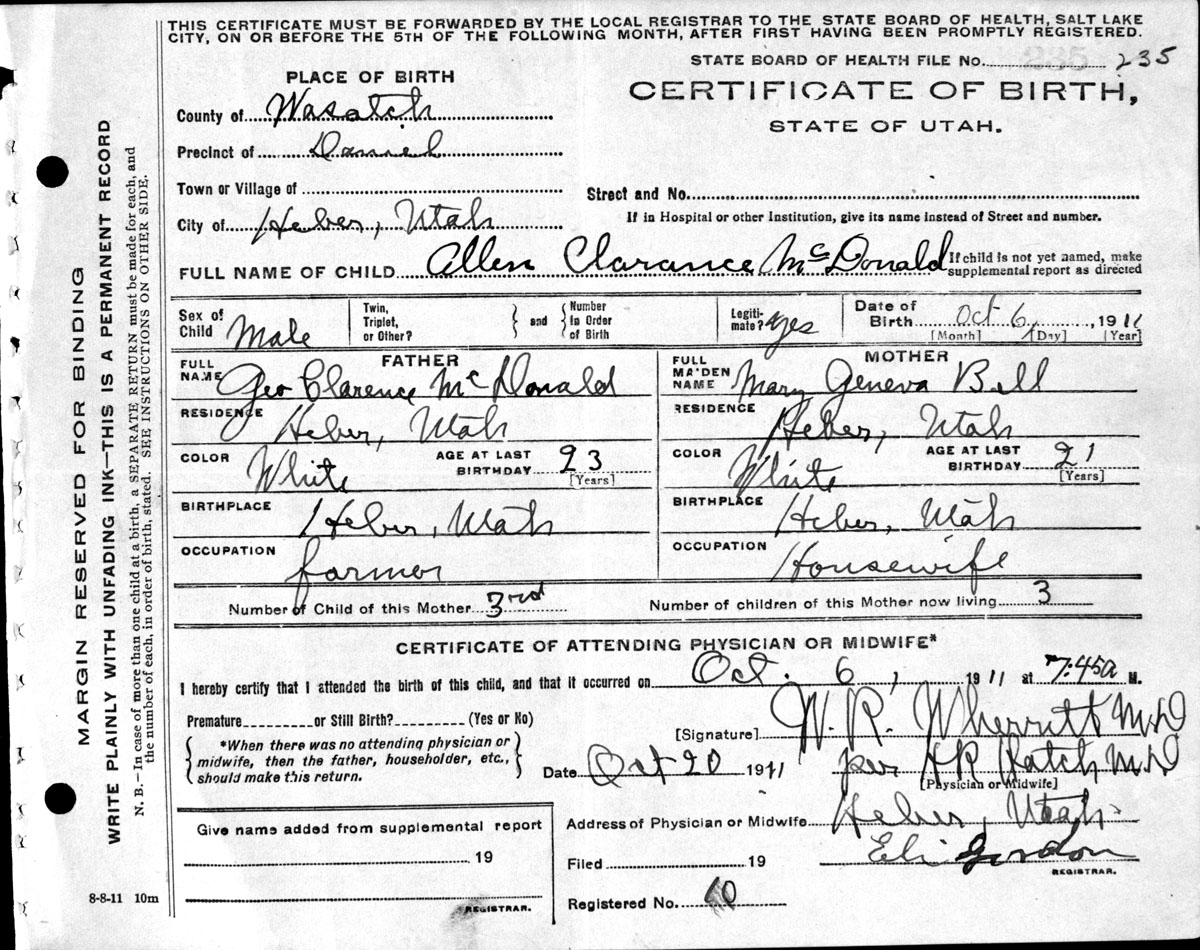 THIS CERTIFICATE MUST BE FORWARDED BY THE LOCAL REGISTRAR TO THE STATE BOARD OF HEALTH, SALT LAKE
CITY, ON OR BEFORE THE 5TH OF THE FOLLOWING MONTH, AFTER FIRST HAVING BEEN PROMPTLY REGISTERED.
STATE BOARD OF HEALTH FILE No. 235 235
PLACE OF BIRTH
CERTIFICATE OF BIRTH,
STATE OF UTAH.
County of Wasatch
Precinct of Daniel
Town or Village of
Street and No.
City of Heber, Utah
If in Hospital or other Institution, give its name instead of Street and number.
FULL NAME OF CHILD Allen Clarance McDonald
If child is not yet named, make
supplemental report as directed
Sex of
Child Male
Twin,
Triplet,
or Other?
and
Number
in Order
of Birth
Legiti-
mate? yes
Date of
Birth Oct 6, 1911
[Month] [Day] [Year]
FATHER
FULL
NAME Geo Clarence McDonald
RESIDENCE Heber, Utah
COLOR White
AGE AT LAST
BIRTHDAY 23
[Years]
BIRTHPLACE Heber, Utah
OCCUPATION farmer
MOTHER
FULL
MAIDEN
NAME Mary Geneva Bell
RESIDENCE Heber, Utah
COLOR White
AGE AT LAST
BIRTHDAY 21
[Years]
BIRTHPLACE Heber, Utah
OCCUPATION Housewife
Number of Child of this Mother 3rd
Number of children of this Mother now living 3
CERTIFICATE OF ATTENDING PHYSICIAN OR MIDWIFE*
I hereby certify that I attended the birth of this child, and that it occurred on Oct. 6, 1911 at 7:45a M.
Premature or Still Birth? (Yes or No)
[Signature] W. R. Wherritt M.D
*When there was no attending physician or
midwife, then the father, householder, etc.,
should make this return.
Date Oct 20 1911
per HR Hatch M.D
[Physician or Midwife]
Give name added from supplemental report
19
REGISTRAR.
Address of Physician or Midwife Heber, Utah
Filed 19
Eli Gordon
REGISTRAR.
Registered No. 60
8-8-11 10m
MARGIN RESERVED FOR BINDING
WRITE PLAINLY WITH UNFADING INK—THIS IS A PERMANENT RECORD
N. B.—In case of more than one child at a birth, a SEPARATE RETURN must be made for each, and
the number of each, in order of birth, stated. SEE INSTRUCTIONS ON OTHER SIDE.